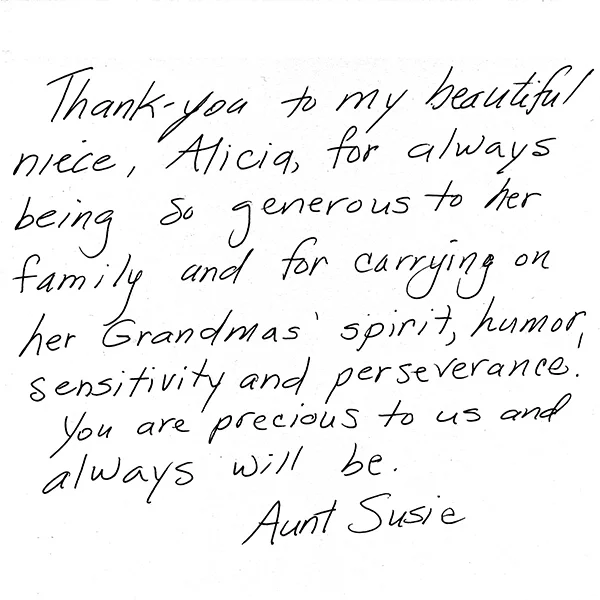 Thank-you to my beautiful
niece, Alicia, for always
being so generous to her
family and for carrying on
her Grandmas' spirit, humor,
sensitivity and perseverance.
You are precious to us and
always will be.
Aunt Susie